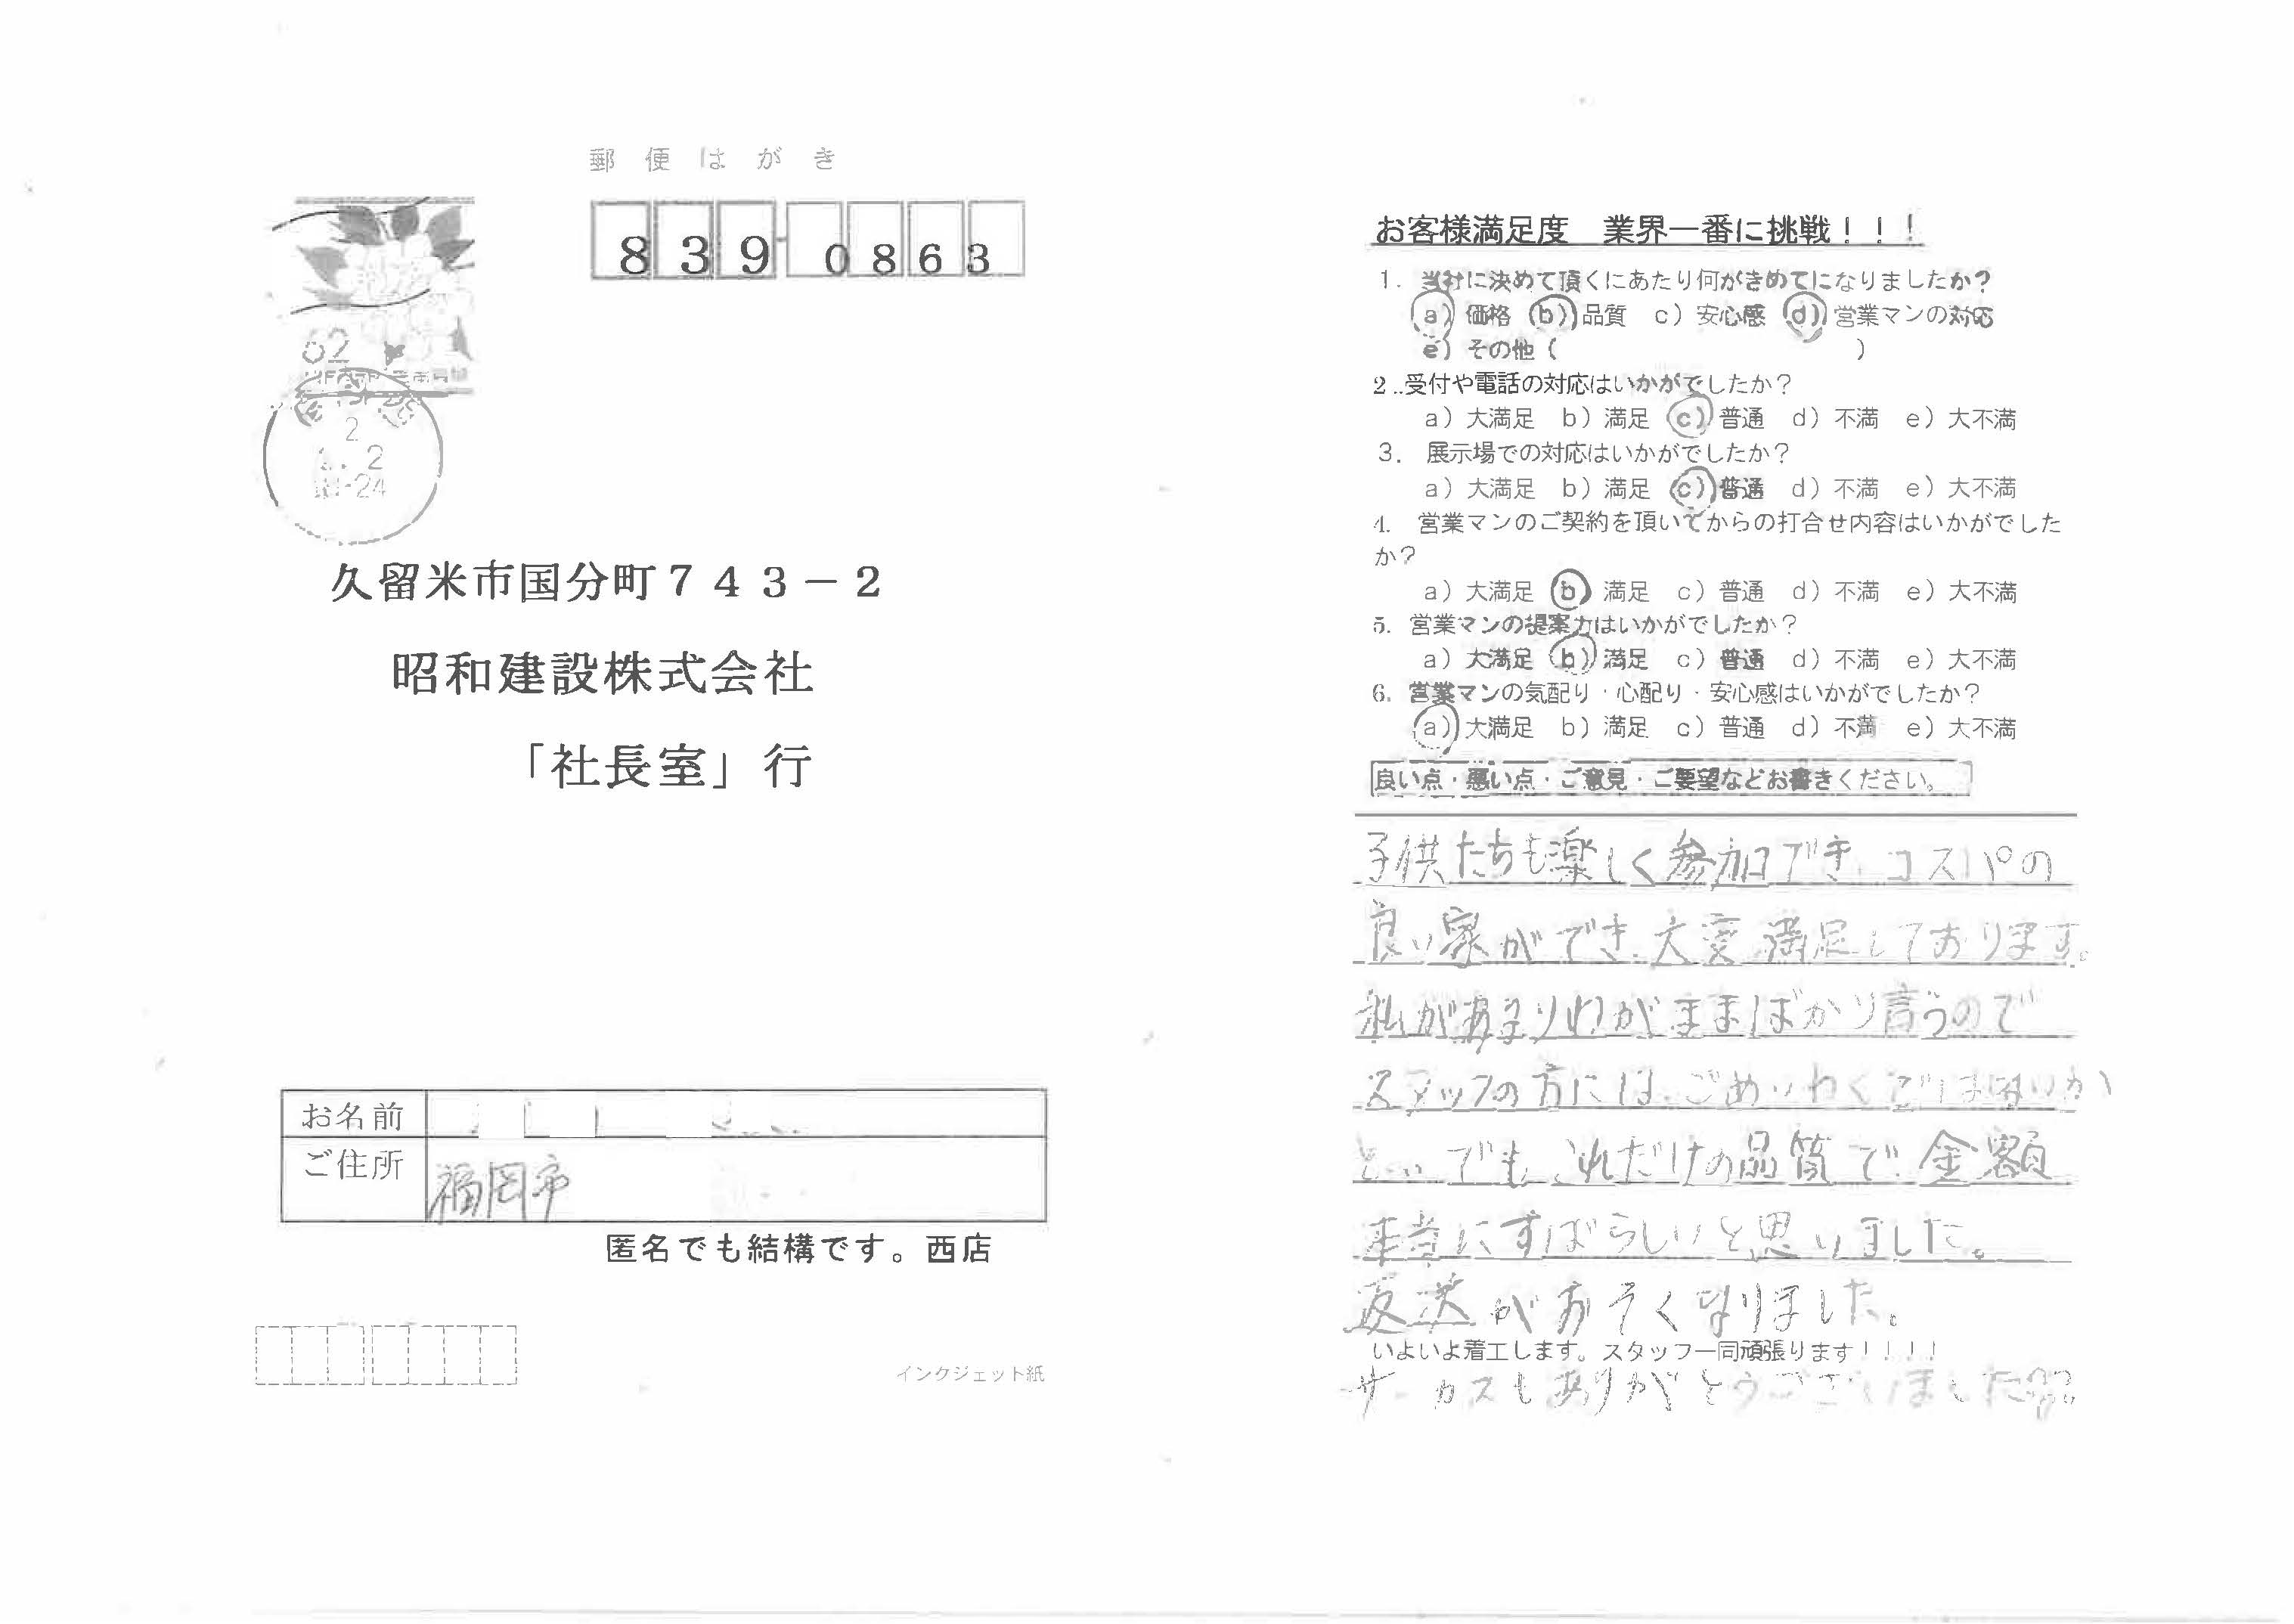 郵便はがき
839-0863
62
2
2
-24
久留米市国分町743-2
昭和建設株式会社
「社長室」行
お名前
ご住所 福岡市
匿名でも結構です。西店
インクジェット紙
お客様満足度 業界一番に挑戦!!!
1. 当社に決めて頂くにあたり何がきめてになりましたか?
a) 価格 b) 品質 c) 安心感 d) 営業マンの対応
e) その他( )
2..受付や電話の対応はいかがでしたか?
a) 大満足 b) 満足 c) 普通 d) 不満 e) 大不満
3. 展示場での対応はいかがでしたか?
a) 大満足 b) 満足 c) 普通 d) 不満 e) 大不満
4. 営業マンのご契約を頂いてからの打合せ内容はいかがでした
か?
a) 大満足 b) 満足 c) 普通 d) 不満 e) 大不満
5. 営業マンの提案力はいかがでしたか?
a) 大満足 b) 満足 c) 普通 d) 不満 e) 大不満
6. 営業マンの気配り・心配り・安心感はいかがでしたか?
a) 大満足 b) 満足 c) 普通 d) 不満 e) 大不満
良い点・悪い点・ご意見・ご要望などお書きください。
子供たちも楽しく参加でき、コスパの
良い家ができ、大変満足しております。
私があまりわがままばかり言うので
スタッフの方には、ごめいわくではないか
と… でも、これだけの品質で、金額
本当にすばらしいと思いました。
返送がおそくなりました。
いよいよ着工します。スタッフ一同頑張ります!!!!
サーカスもありがとうございました